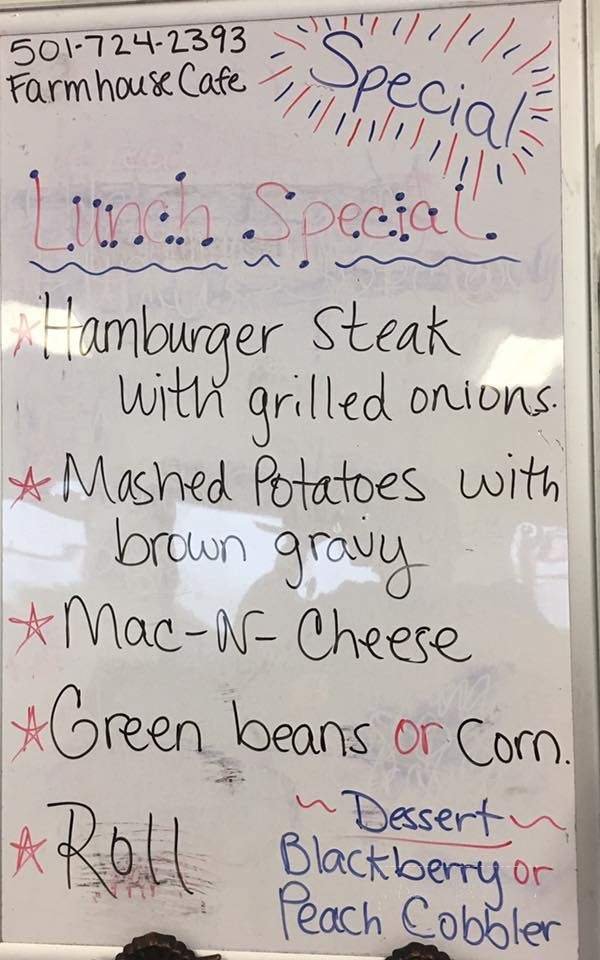 501-724-2393
Farmhouse Cafe
Special
Lunch Special
Hamburger Steak
with grilled onions.
Mashed Potatoes with
brown gravy
Mac-N-Cheese
Green beans or Corn.
Roll
~ Dessert ~
Blackberry or
Peach Cobbler